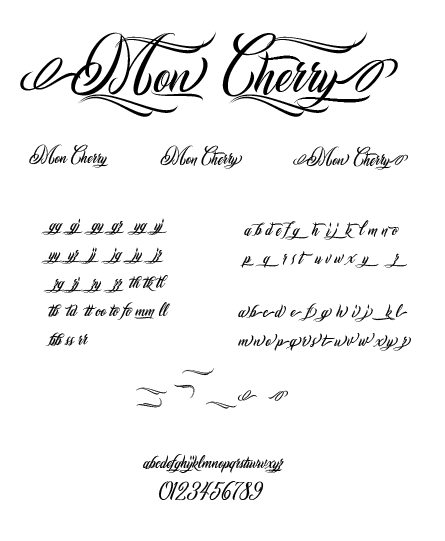 Mon Cherry
Mon Cherry
Mon Cherry
Mon Cherry
gg gj gy gz yg yj
yy yz jj jg jy jz
zg zj zy zz th tk tl
tb td tt oo to fo mm ll
bb ss rr
a b d e f g h i j k l m n o
p q r s t u v w x y z
a b c d e f g h i j k l
m n o p q r s t u v w x y z
abcdefghijklmnopqrstuvwxyz
0123456789